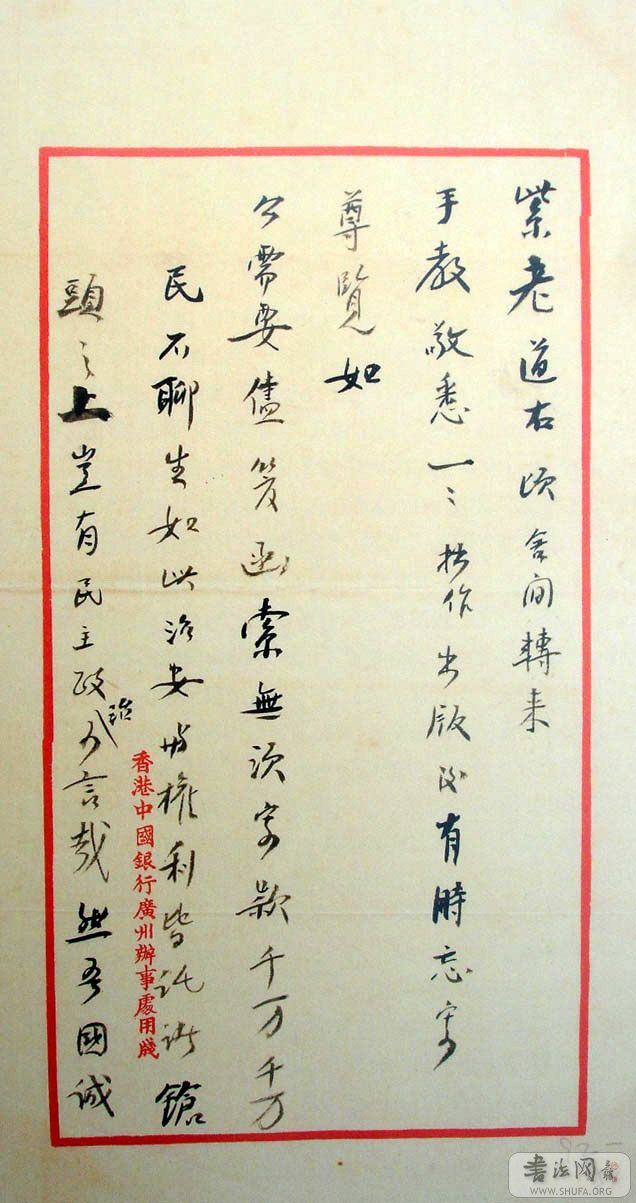 紫老道右頃舍间轉来
手教敬悉一〻拙作出版後有時忘寄
尊覽如
公需要儘管函索無須寄款千万千万
民不聊生如此治安與權利皆託諸鎗
頭之上豈有民主政治可言哉然吾國誠
香港中國銀行廣州辦事處用牋
书法网
WWW.SHUFA.ORG